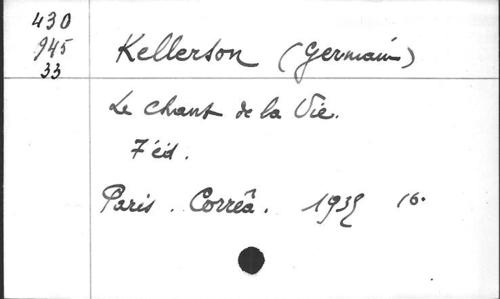 430
945
33
Kellerson (Germain)
Le Chant de la Vie.
7 éd.
Paris. Corrêa. 1935 16.